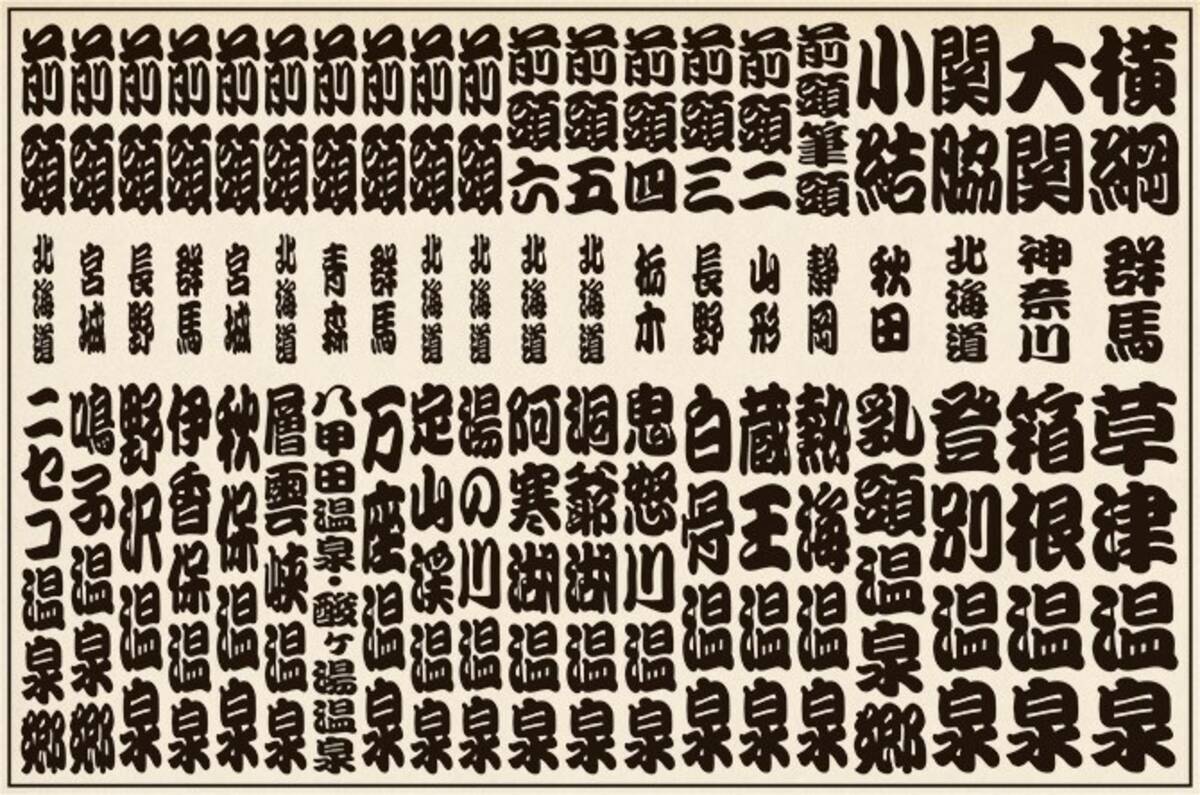 横綱 群馬 草津温泉
大関 神奈川 箱根温泉
関脇 北海道 登別温泉
小結 秋田 乳頭温泉郷
前頭筆頭 静岡 熱海温泉
前頭二 山形 蔵王温泉
前頭三 長野 白骨温泉
前頭四 栃木 鬼怒川温泉
前頭五 北海道 洞爺湖温泉
前頭六 北海道 阿寒湖温泉
前頭 北海道 湯の川温泉
前頭 北海道 定山渓温泉
前頭 群馬 万座温泉
前頭 青森 八甲田温泉・酸ヶ湯温泉
前頭 北海道 層雲峡温泉
前頭 宮城 秋保温泉
前頭 群馬 伊香保温泉
前頭 長野 野沢温泉
前頭 宮城 鳴子温泉郷
前頭 北海道 ニセコ温泉郷